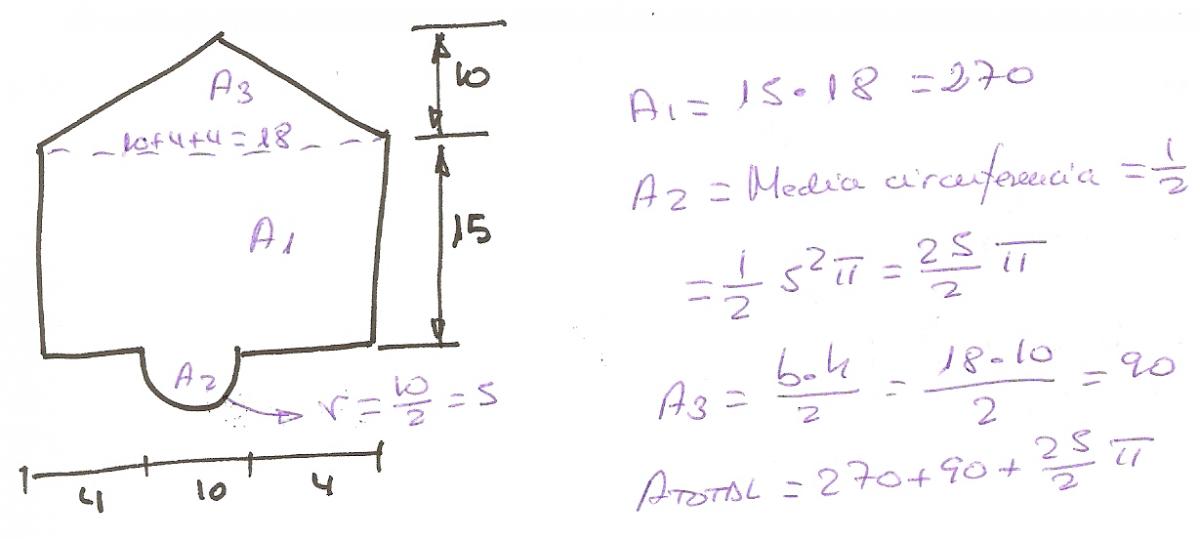 A3
10+4+4=18
A1
A2
r = 10/2 = 5
10
15
4 10 4
A1 = 15 · 18 = 270
A2 = Media circunferencia = 1/2
= 1/2 5² π = 25/2 π
A3 = b·h/2 = 18·10/2 = 90
ATOTAL = 270+90+ 25/2 π